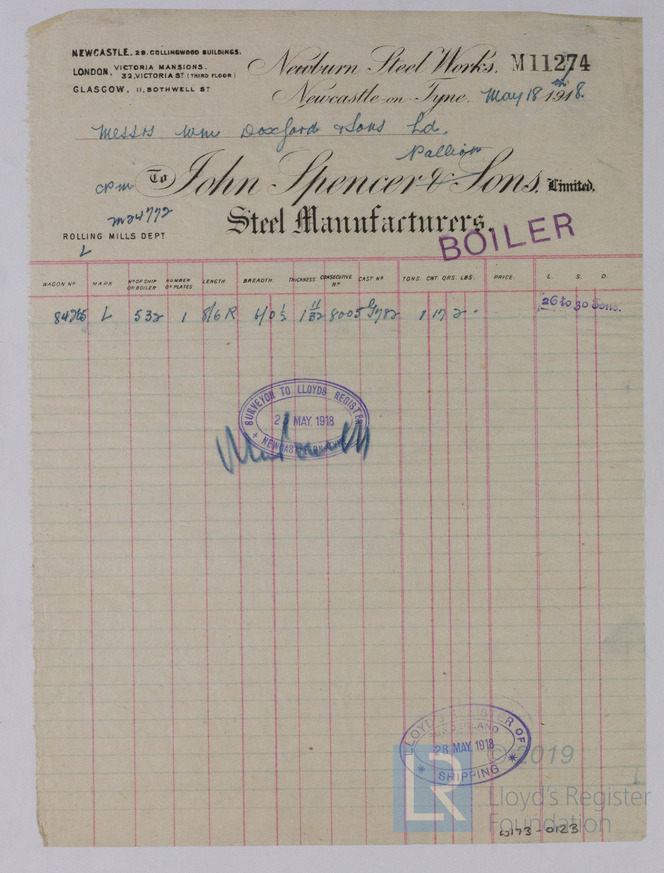 NEWCASTLE, 28. COLLINGWOOD BUILDINGS.
LONDON, VICTORIA MANSIONS. 32, VICTORIA ST (THIRD FLOOR)
GLASGOW, 11, BOTHWELL ST
Newburn Steel Works, M11274
Newcastle-on-Tyne. May 18th 1918.
Messrs Wm Doxford & Sons Ld.
Pallion
To John Spencer & Sons, Limited.
Steel Manufacturers.
ROLLING MILLS DEPT
L
BOILER
WAGON No MARK No OF SHIP OR BOILER NUMBER OF PLATES LENGTH BREADTH THICKNESS CONSECUTIVE No CAST No TONS. CWT. QRS. LBS. PRICE. L. S. D.
L 532 1 8/6 R 6/0 1/2 1 11/32 8005 1 17 2 - 26 to 30 Tons.
SURVEYOR TO LLOYDS REGISTER
MAY. 1918
LLOYD'S REGISTER OF
SUNDERLAND
28 MAY. 1918
SHIPPING
© 2019
LR
Lloyd's Register
Foundation
0173-0123